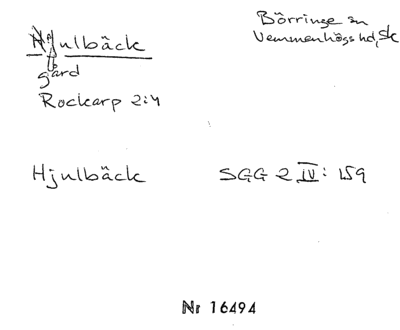 Hjulbäck
gård
Rockarp 2:4
Börringe sn
Vemmenhögs hd, Sk
Hjulbäck SGG 2 IV: 159
Nr 16494